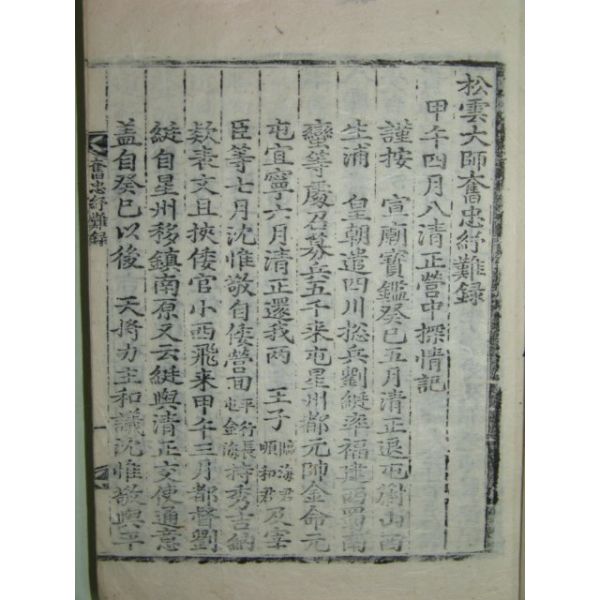 松雲大師奮忠紓難錄
甲午四月入清正營中探情記
謹按 宣廟寶鑑癸巳五月淸正退屯蔚山西
生浦 皇朝遣四川摠兵劉綎率福建西蜀南
蠻等處召募兵五千来屯星州都元帥金命元
屯宜寧六月清正還我兩 王子臨海君順和君及宰
臣等七月沈惟敬自倭營回平行長屯金海持秀吉納
欵表文且挾倭官小西飛来甲午三月都督劉
綎自星州移鎮南原又云綎與清正交使通意
盖自癸巳以後 天將力主和議沈惟敬與平
奮忠紓難錄
一